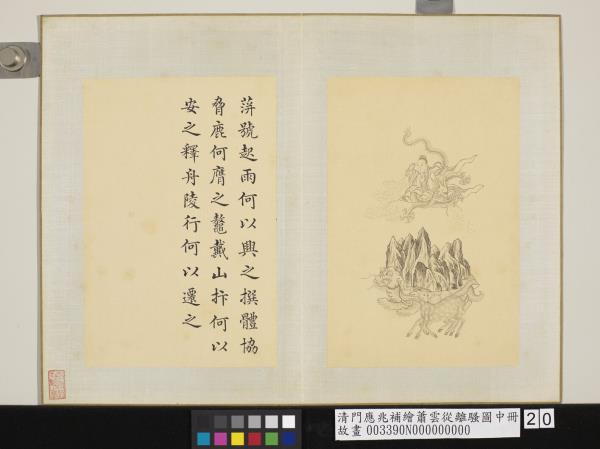 蓱號起雨何以興之撰體協
脅鹿何膺之鼇戴山抃何以
安之釋舟陵行何以遷之
清門應兆補繪蕭雲從離騷圖中冊
故畫 003390N000000000
20